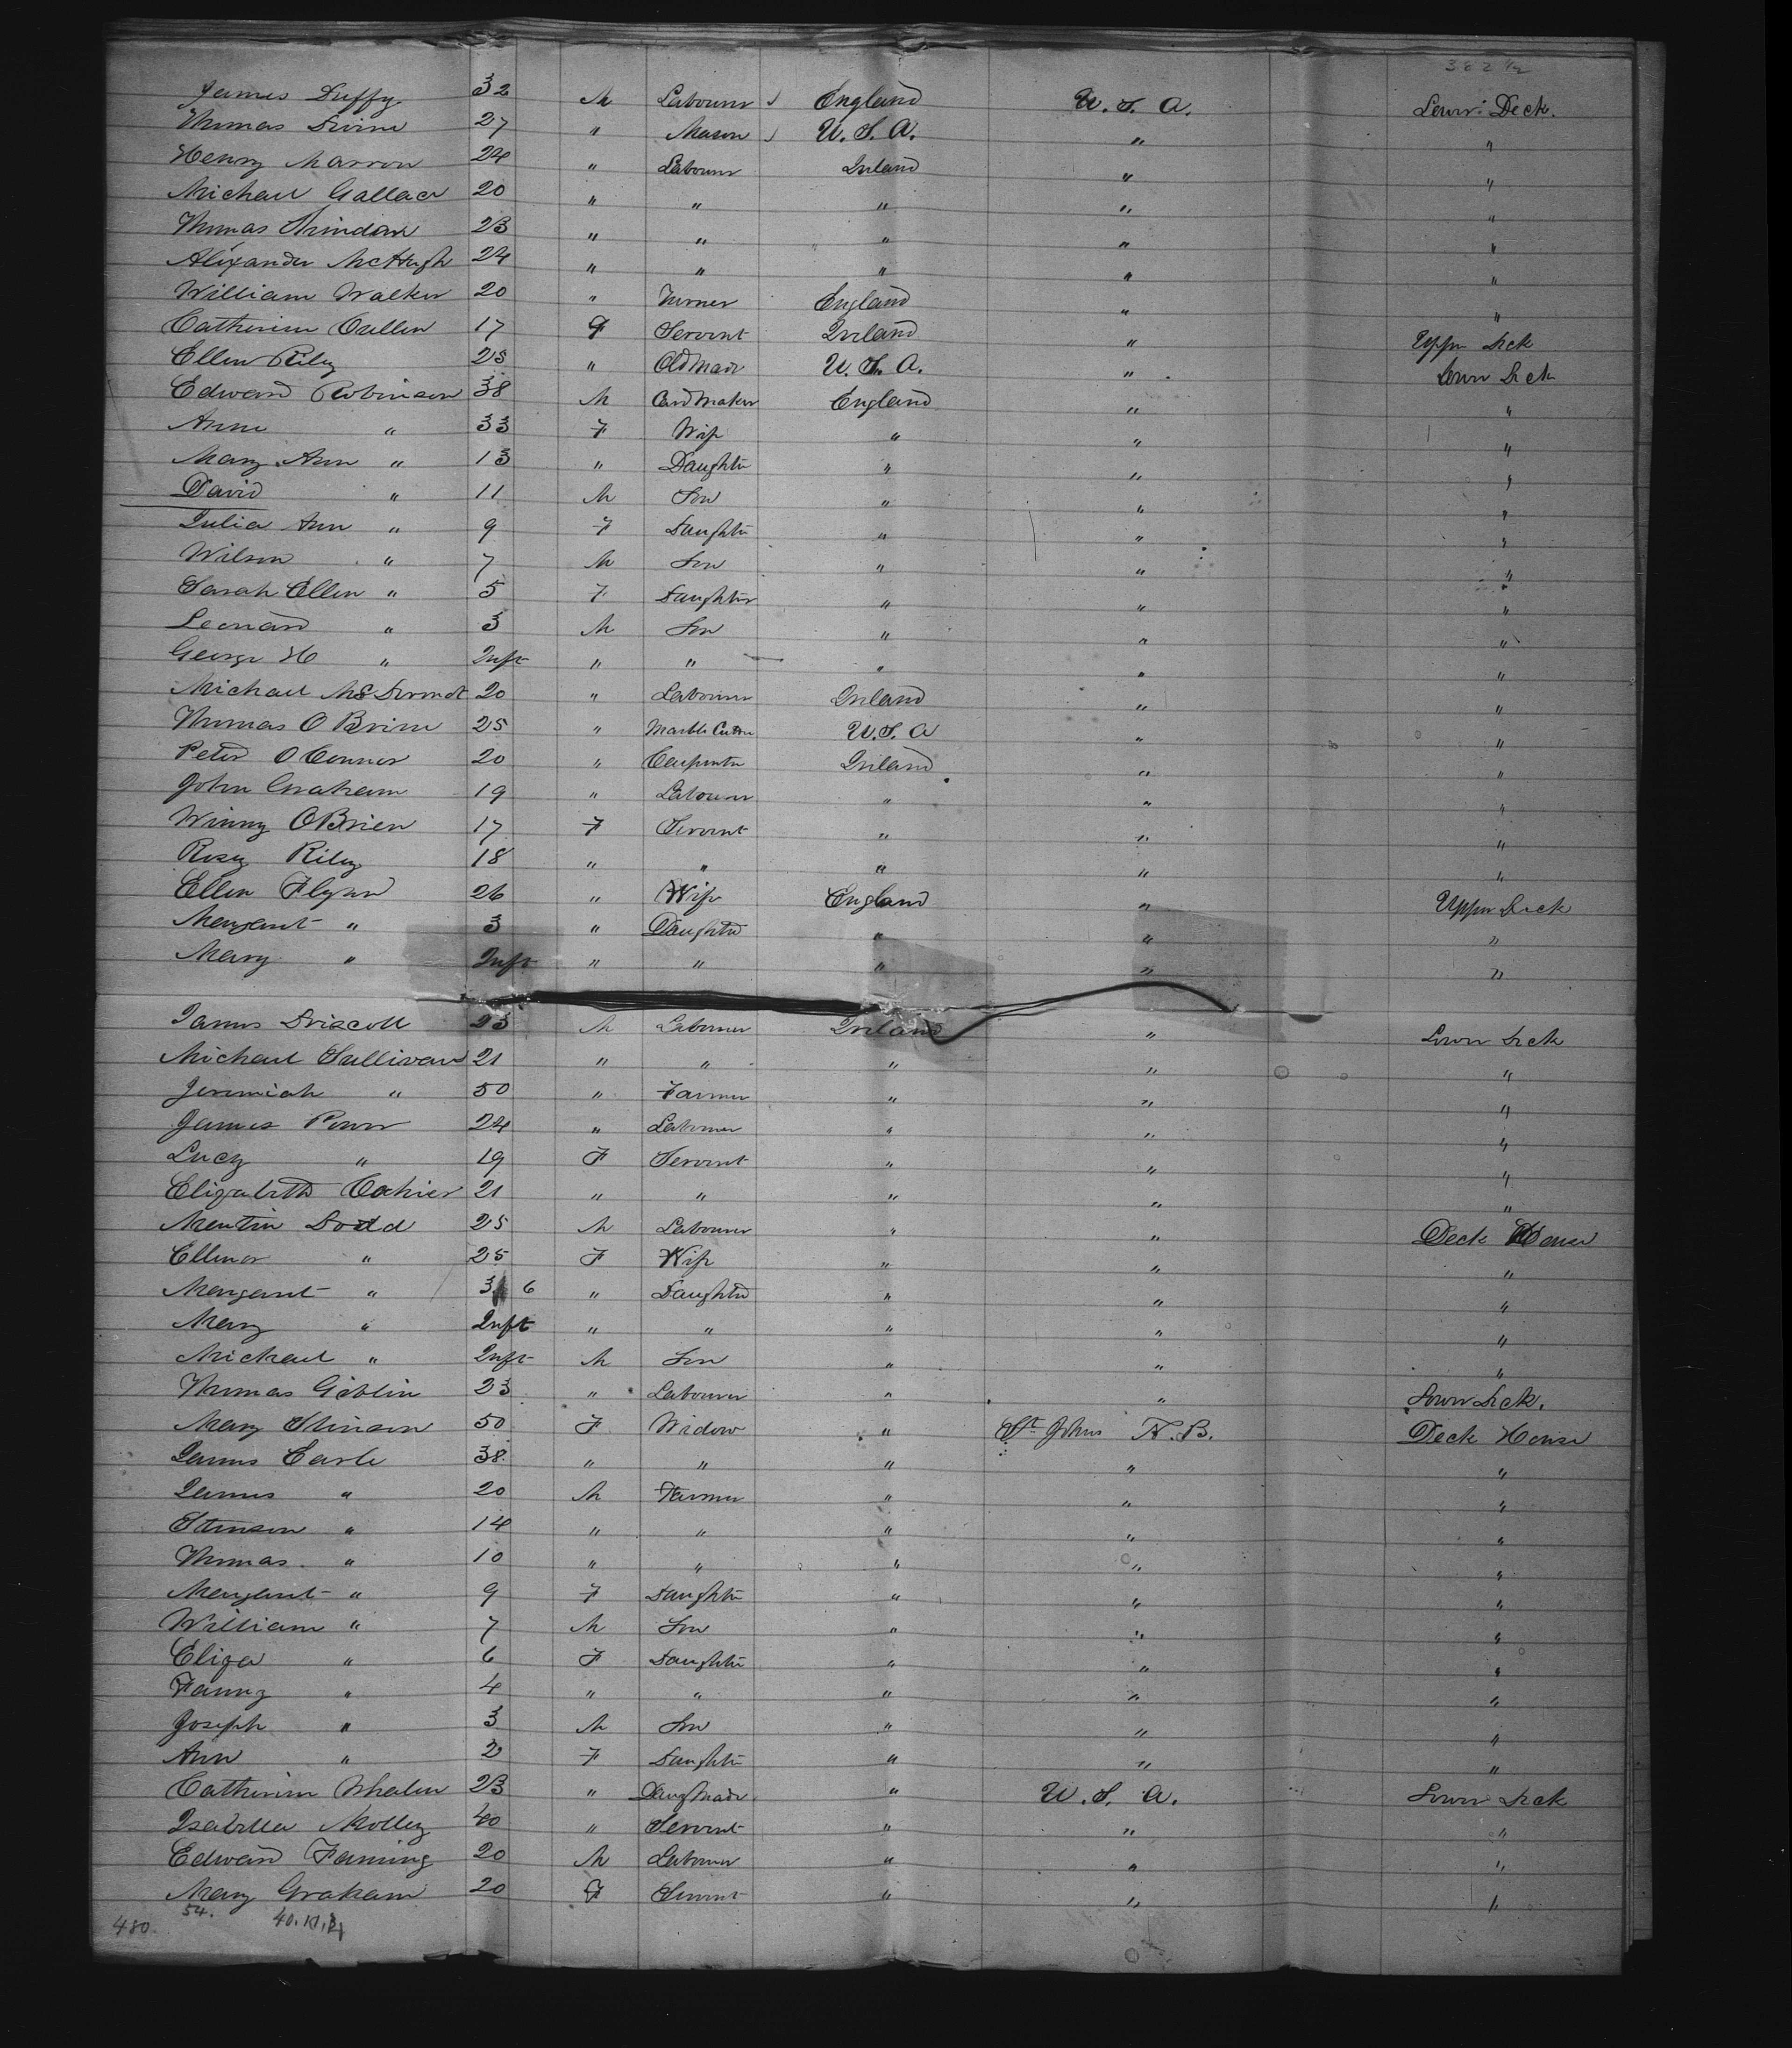 382 1/2
James Duffy 32 M Labourer England U. S. A. Lower Deck.
Thomas Divine 27 " Mason U. S. A. " "
Henry Marron 24 " Labourer Ireland " "
Michael Gallacr 20 " " " " "
Thomas 23 " " " " "
Alexander McHugh 24 " " " " "
William Walker 20 " Turner England " "
Catherine Cullen 17 F Servant Ireland " Upper Deck
Ellen Riley 25 " Old Maid U. S. A. " Lower Deck
Edward Robinson 38 M Card Maker England " "
Anne " 33 F Wife " " "
Mary Ann " 13 " Daughter " " "
David " 11 M Son " " "
Julia Ann " 9 F Daughter " " "
Wilson " 7 M Son " " "
Sarah Ellen " 5 F Daughter " " "
Leonard " 3 M Son " " "
George H " Inft " " " " "
Michael McDermot 20 " Labourer Ireland " "
Thomas O Brine 25 " Marble Cutter U. S. A " "
Peter O Connor 20 " Carpenter Ireland " "
John Graham 19 " Labourer " " "
Winny OBrien 17 F Servant " " "
Rosy Riley 18 " " " " "
Ellen Flynn 26 " Wife England " Upper Deck
Margaret " 3 " Daughter " " "
Mary " Inft " " " " "
James Driscoll 23 M Labourer Ireland " Lower Deck
Michael Sullivan 21 " " " " "
Jeremiah " 50 " Farmer " " "
James Power 24 " Labourer " " "
Lucy " 19 F Servant " " "
Elizabeth 21 " " " " "
Martin Dodd 25 M Labourer " " Deck House
Ellenor " 25 F Wife " " "
Margaret " 3 6 " Daughter " " "
Mary " Inft " " " " "
Michael " Inft M Son " " "
Thomas Giblin 23 " Labourer " " Lower Deck.
Mary Stinson 50 F Widow " St Johns N. B. Deck House
James Earle 38 " " " " "
James " 20 M Farmer " " "
Stinson " 14 " " " " "
Thomas " 10 " " " " "
Margaret " 9 F Daughter " " "
William " 7 M Son " " "
Eliza " 6 F Daughter " " "
Fanny " 4 " " " " "
Joseph " 3 M Son " " "
Ann " 2 F Daughter " " "
Catherine Whalen 23 " " U. S. A. Lower Deck
Isabella Molley 40 " Servant " " "
Edward Faning 20 M Labourer " " "
Mary Graham 20 F Servant " " "
480. 54.